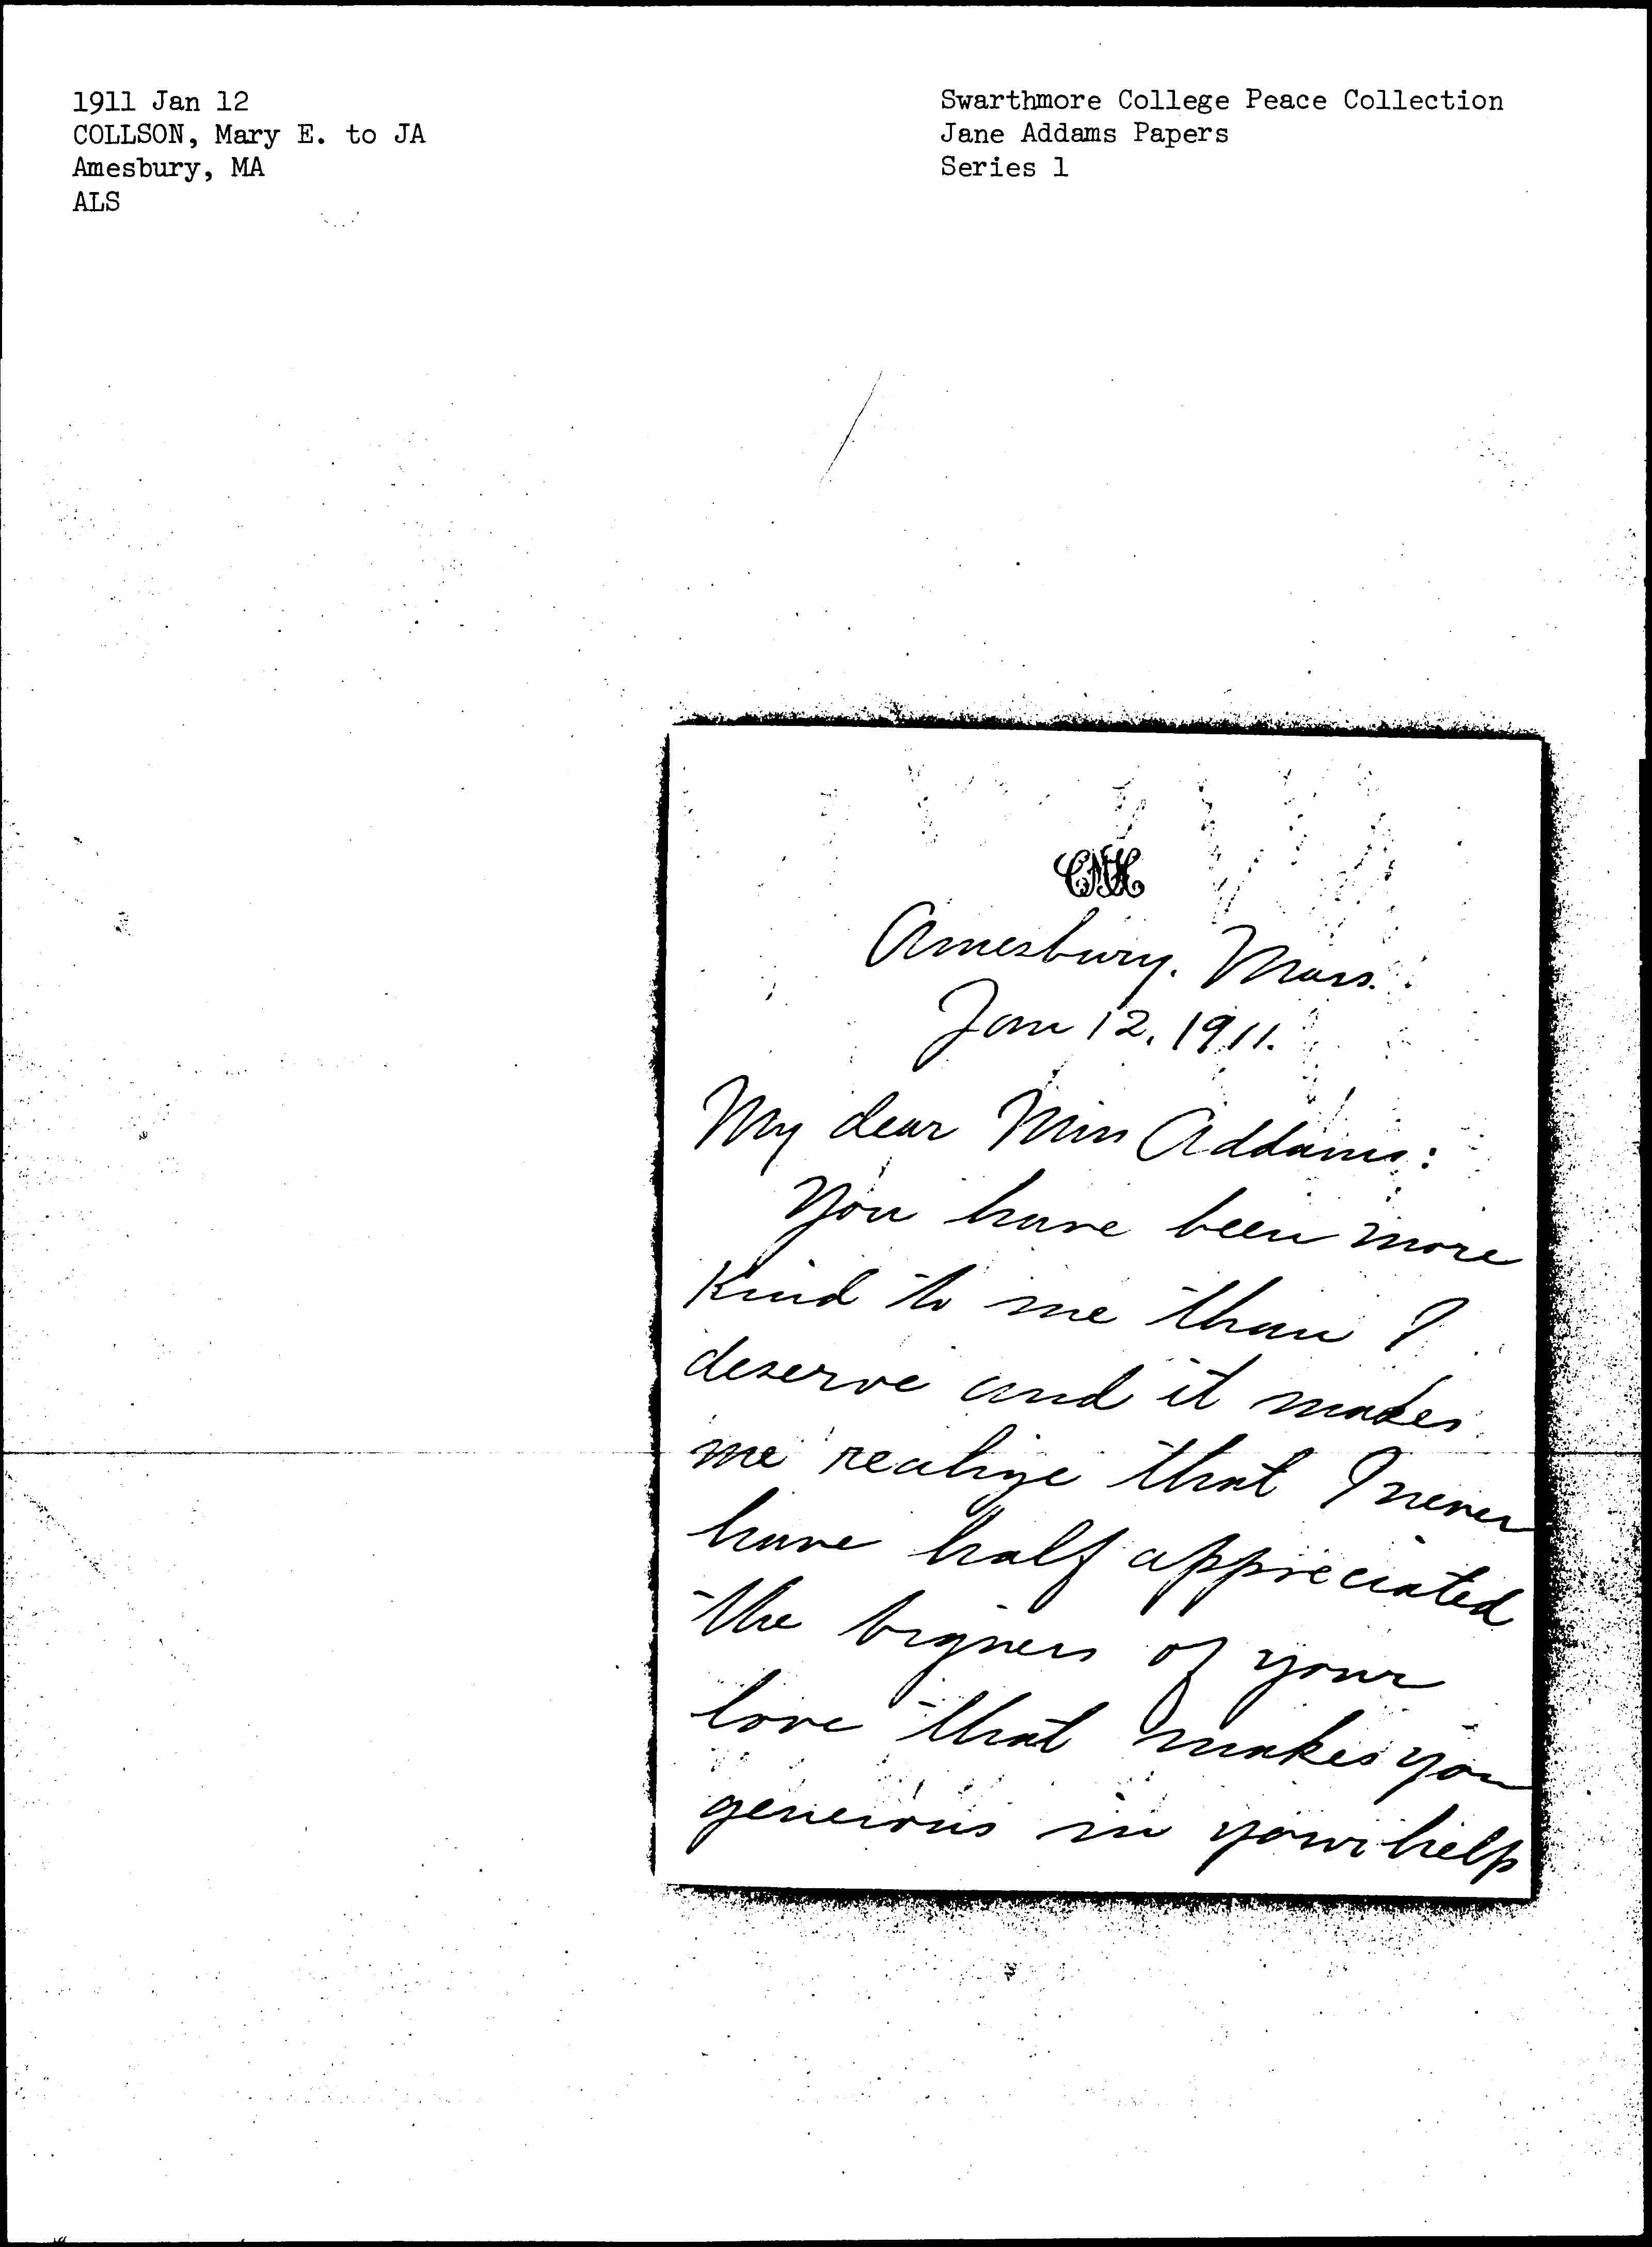 1911 Jan 12
COLLSON, Mary E. to JA
Amesbury, MA
ALS
Swarthmore College Peace Collection
Jane Addams Papers
Series 1
Amesbury. Mass.
Jan 12, 1911.
My dear Miss Addams:
You have been more
kind to me than I
deserve and it makes
me realize that I never
have half appreciated
the bigness of your
love that makes you
generous in your help